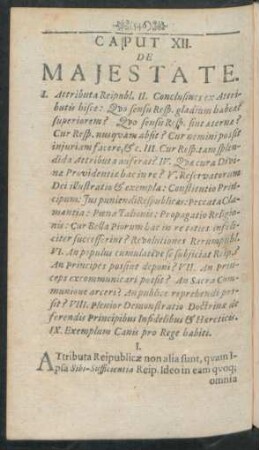 (146)
CAPUT XII.
DE
MAJESTATE.
I. Attributa Reipubl. II. Conclusiones ex Attri-
butis hisce: Quo sensu Resp. gladium habeat
superiorem? Quo sensu Resp. sint æternæ?
Cur Resp. nusquam absit? Cur nemini possit
injuriam facere, &c. III. Cur Resp. tam splen-
dida Attributa auferat? IV. Quæ cura Divi-
næ Providentiæ hac in re? V. Reservatorum
Dei illustratio & exempla: Constitutio Prin-
cipum: Jus puniendi Respublicas: Peccata Cla-
mantia: Pœna Talionis: Propagatio Religio-
nis: Cur Bella Piorum hac in re toties infeli-
citer successerint? Revolutiones Rerumpubl.
VI. An populus cumulative se subjiciat Reip.?
An Principes possint deponi? VII. An prin-
ceps excommunicari possit? An Sacra Com-
munione arceri? An publice reprehendi pos-
sit? VIII. Plenior Demonstratio Doctrinæ de
ferendis Principibus Infidelibus & Hæreticis.
IX. Exemplum Canis pro Rege habiti.
I.
ATtributa Reipublicæ non alia sunt, quam i-
psa Sibi-Sufficientia Reip. Ideo in eam quoq;
omnia